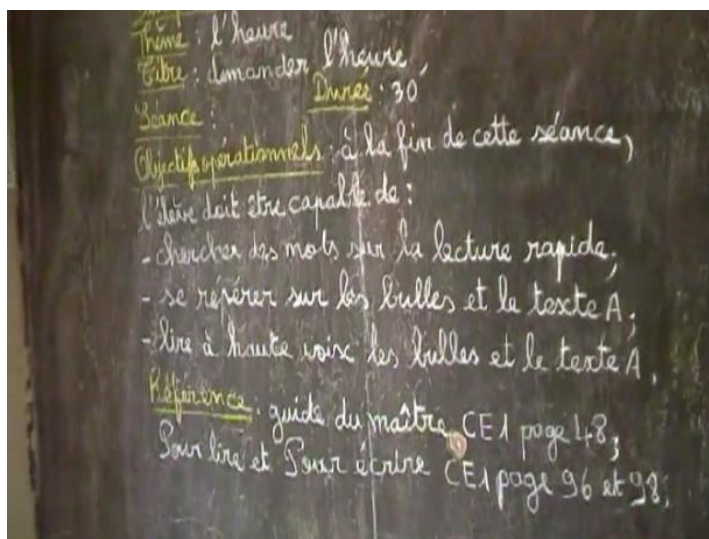 Thème : l'heure
Titre : demander l'heure,
Durée : 30
Séance :
Objectifs opérationnels : à la fin de cette séance,
l'élève doit être capable de :
- chercher des mots sur la lecture rapide;
- se repérer sur les bulles et le texte A;
- lire à haute voix les bulles et le texte A.
Référence : guide du maître CE1 page 48;
Pour lire et Pour écrire CE1 page 96 et 98;